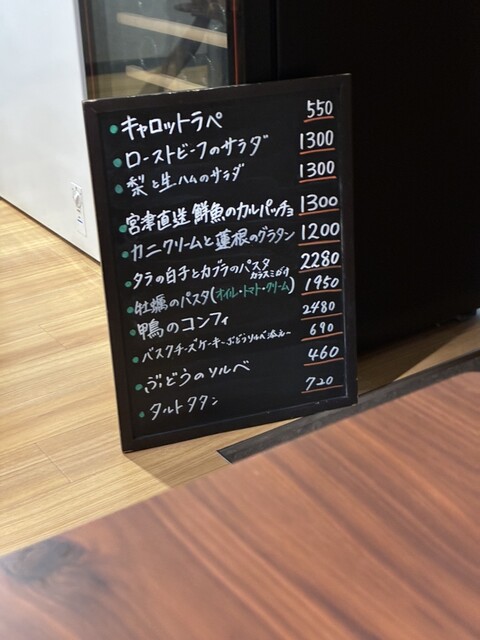 ・キャロットラペ 550
・ローストビーフのサラダ 1300
・梨と生ハムのサラダ 1300
・宮津直送 鮮魚のカルパッチョ 1300
・カニクリームと蓮根のグラタン 1200
・タラの白子とカブラのパスタ 2280
カラスミがけ
・牡蠣のパスタ(オイル・トマト・クリーム) 1950
・鴨のコンフィ 2480
・バスクチーズケーキ〜ぶどうソルベ添え〜 690
・ぶどうのソルベ 460
・タルトタタン 720